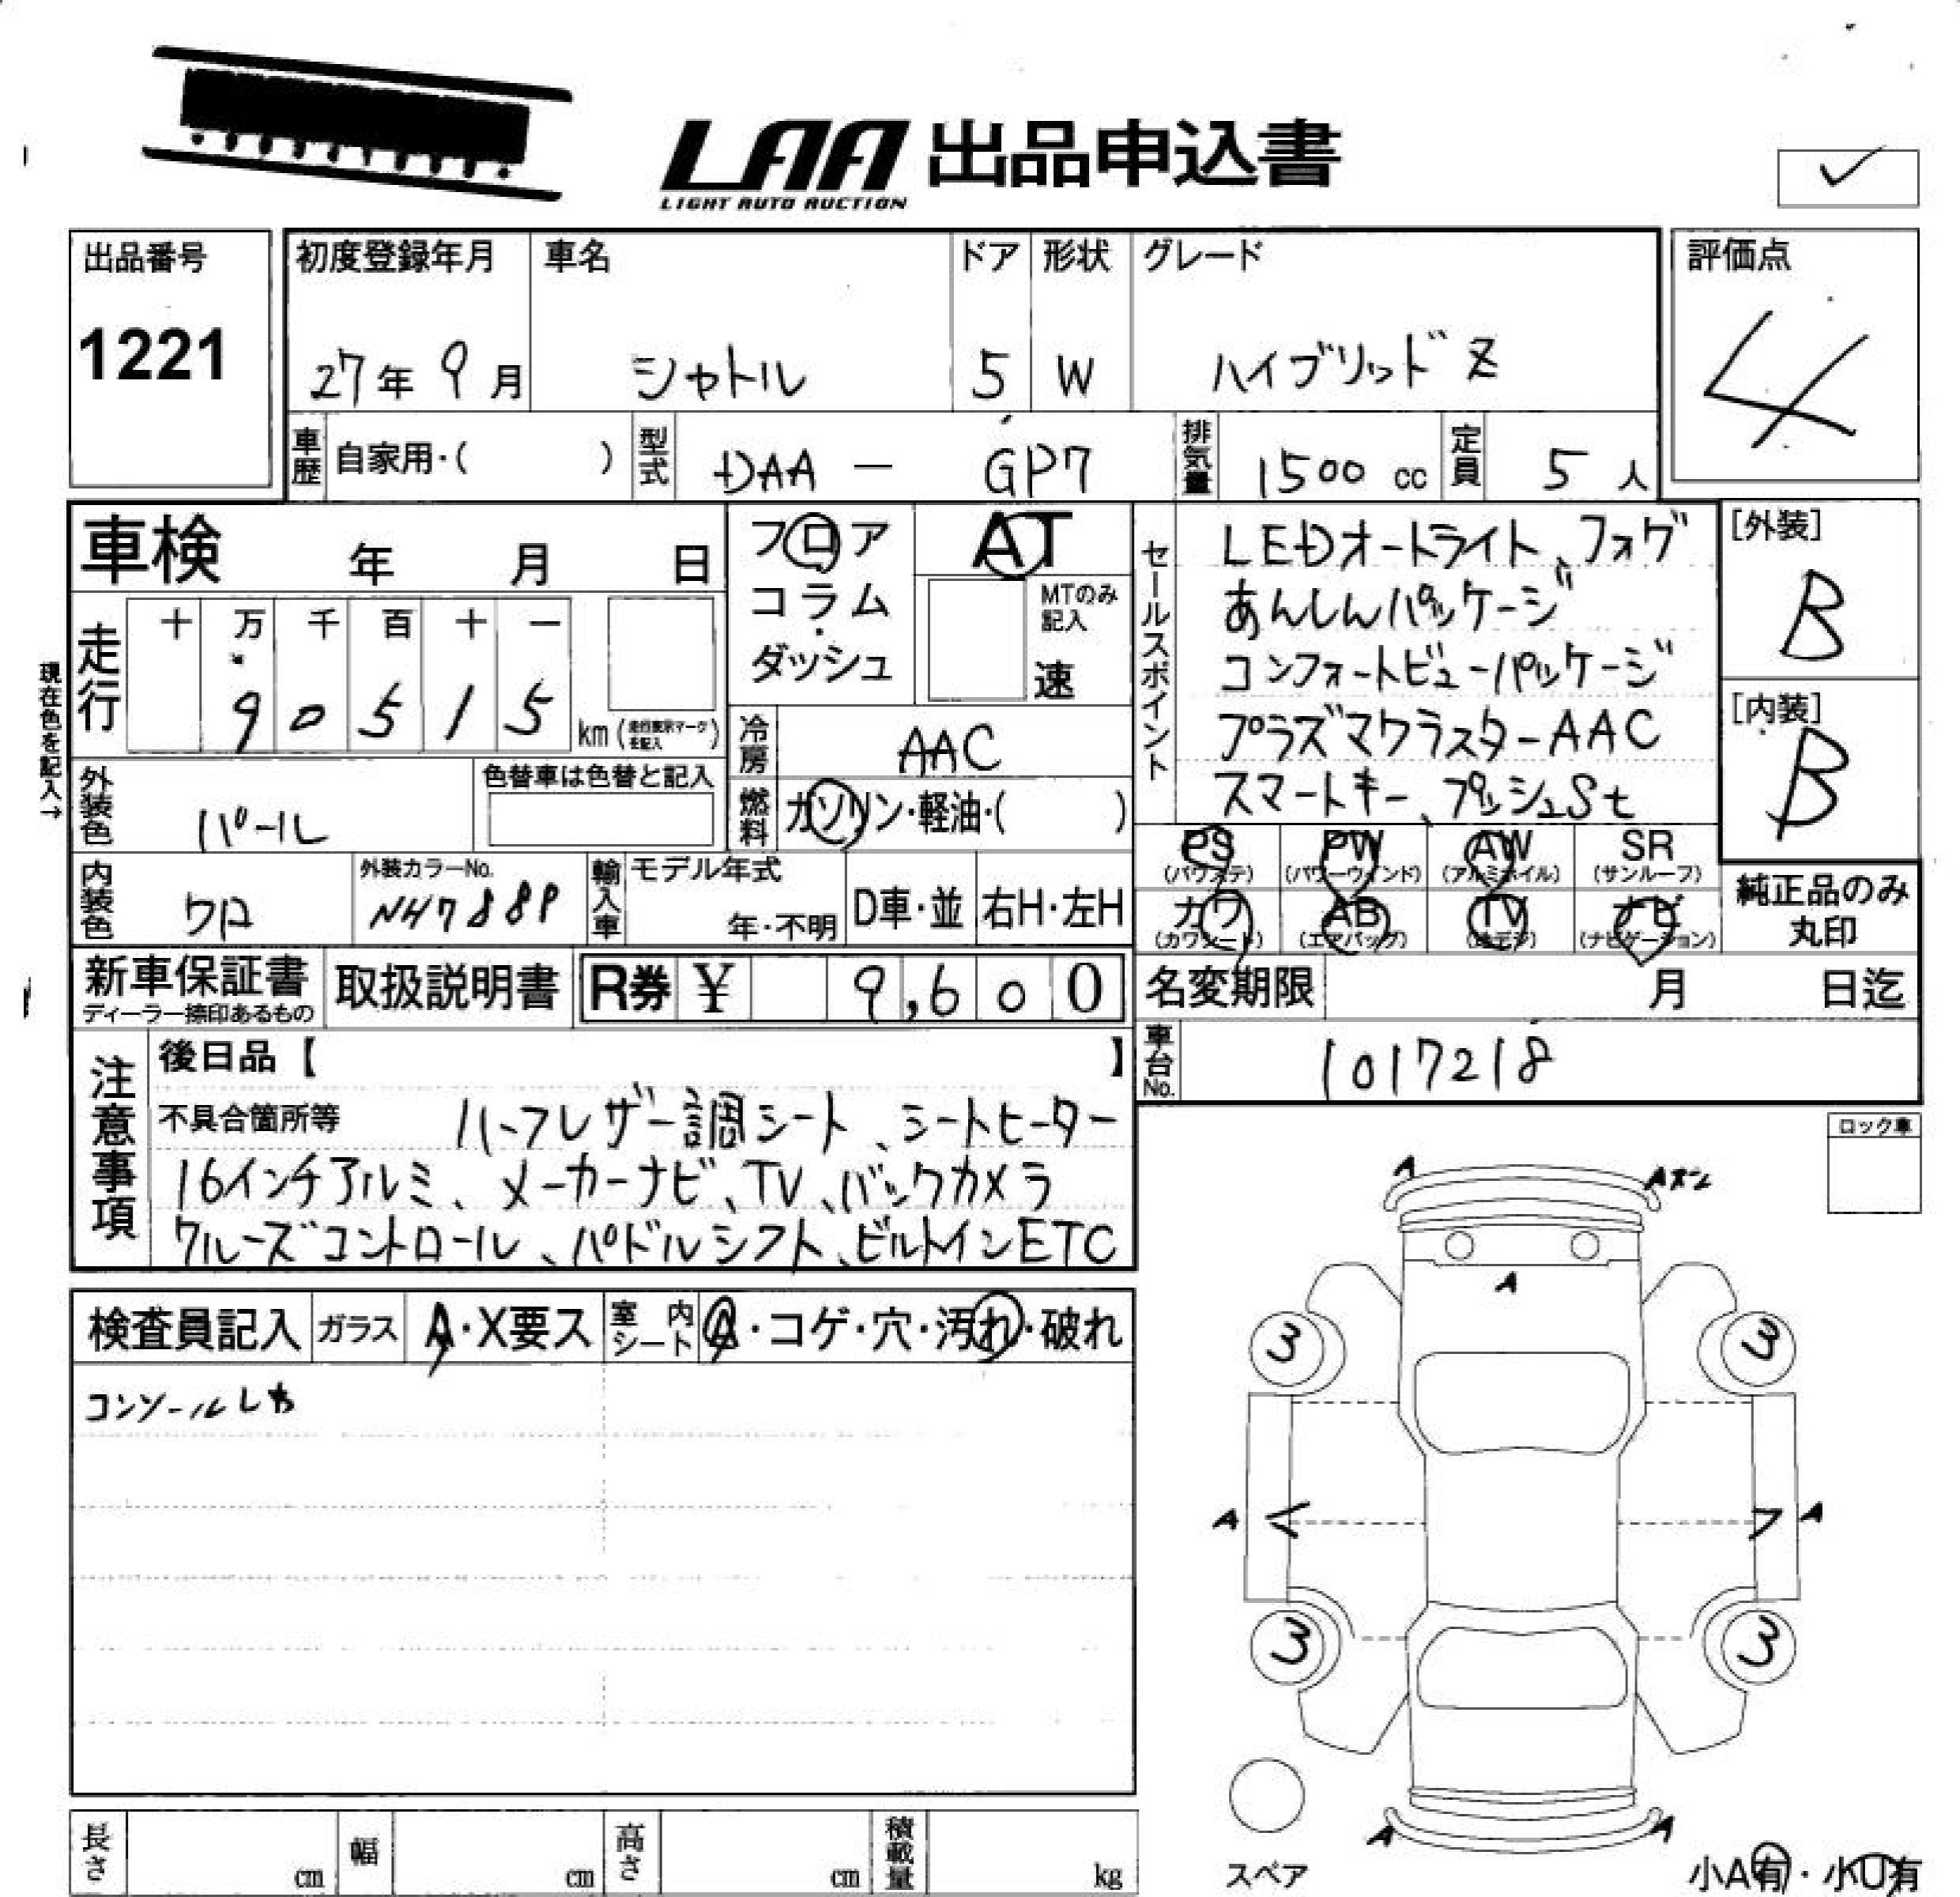 LAA 出品申込書
LIGHT AUTO AUCTION
✓
出品番号
1221
初度登録年月
27年 9月
車名
シャトル
ドア
5
形状
W
グレード
ハイブリッド Z
評価点
4
車歴
自家用・( )
型式
DAA - GP7
排気量
1500 cc
定員
5 人
車検 年 月 日
フロア
コラム
・
ダッシュ
AT
MTのみ
記入
速
セールスポイント
LEDオートライト、フォグ
あんしんパッケージ
コンフォートビューパッケージ
プラズマクラスターAAC
スマートキー、プッシュSt
[外装]
B
[内装]
B
現在色を記入→
走行
十 万 千 百 十 一
9 0 5 1 5
km (走行表示マークを記入)
冷房
AAC
燃料
ガソリン・軽油・( )
外装色
パール
色替車は色替と記入
内装色
クロ
外装カラーNo.
NH788P
輸入車
モデル年式
年・不明
D車・並
右H・左H
PS
(パワステ)
PW
(パワーウインド)
AW
(アルミホイル)
SR
(サンルーフ)
カワ
(カワシート)
AB
(エアバッグ)
TV
(地デジ)
ナビ
(ナビゲーション)
純正品のみ
丸印
新車保証書
ディーラー捺印あるもの
取扱説明書
R券 ¥ 9,600
名変期限 月 日迄
車台No.
1017218
注意事項
後日品【 】
不具合箇所等 ハーフレザー調シート、シートヒーター
16インチアルミ、メーカーナビ、TV、バックカメラ
クルーズコントロール、パドルシフト、ビルトインETC
ロック車
検査員記入
ガラス
A・X要ス
室内シート
A・コゲ・穴・汚れ・破れ
コンソールしわ
A
A
A
3
3
A
A
3
3
A
A
スペア
小A有・小U有
長さ cm
幅 cm
高さ cm
積載量 kg